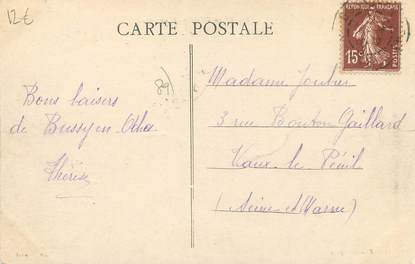 12€
CARTE POSTALE
REPUBLIQUE FRANÇAISE
15c
Madame
3 rue Bouton Gaillard
Vaux le Pénil
(Seine et Marne)
Bons baisers
de Bussy en Othe
Thérèse